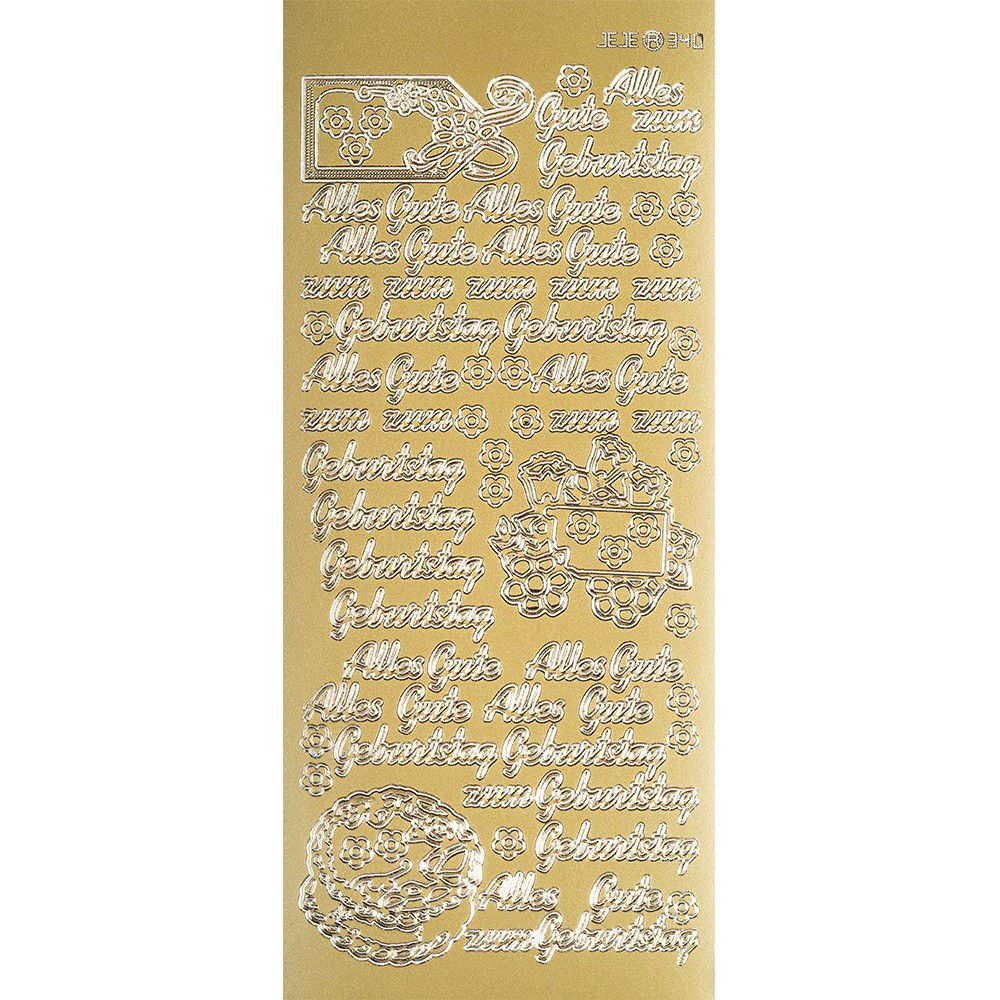 JEJE ® 340
Alles
Gute zum
Geburtstag
Alles Gute Alles Gute
Alles Gute Alles Gute
zum zum zum zum zum
Geburtstag Geburtstag
Alles Gute Alles Gute
zum zum zum zum
Geburtstag
Geburtstag
Geburtstag
Geburtstag
Alles Gute Alles Gute
Alles Gute Alles Gute
Geburtstag Geburtstag
zum Geburtstag
Geburtstag
Alles Gute
zum Geburtstag